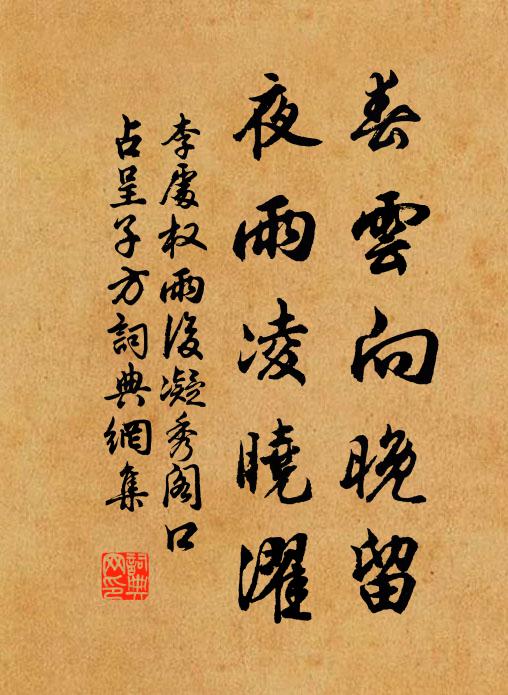 春雲向晚留
夜雨凌曉濯
李處权雨後凝秀阁口
占呈子方詞典網集
詞典网印